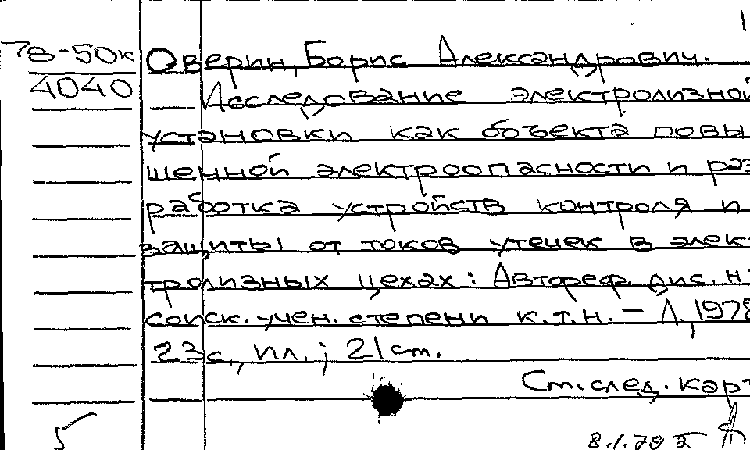 78-50к Оверин, Борис Александрович.
4040 Исследование электролизной
установки как объекта повы-
шенной электроопасности и раз
работка устройств контроля и
защиты от токов утечек в элек
тролизных цехах: Автореф. дис. н.
соиск. учен. степени к.т.н. – Л, 1978
23с., ил.; 21 см.
Ст. след. карт
5